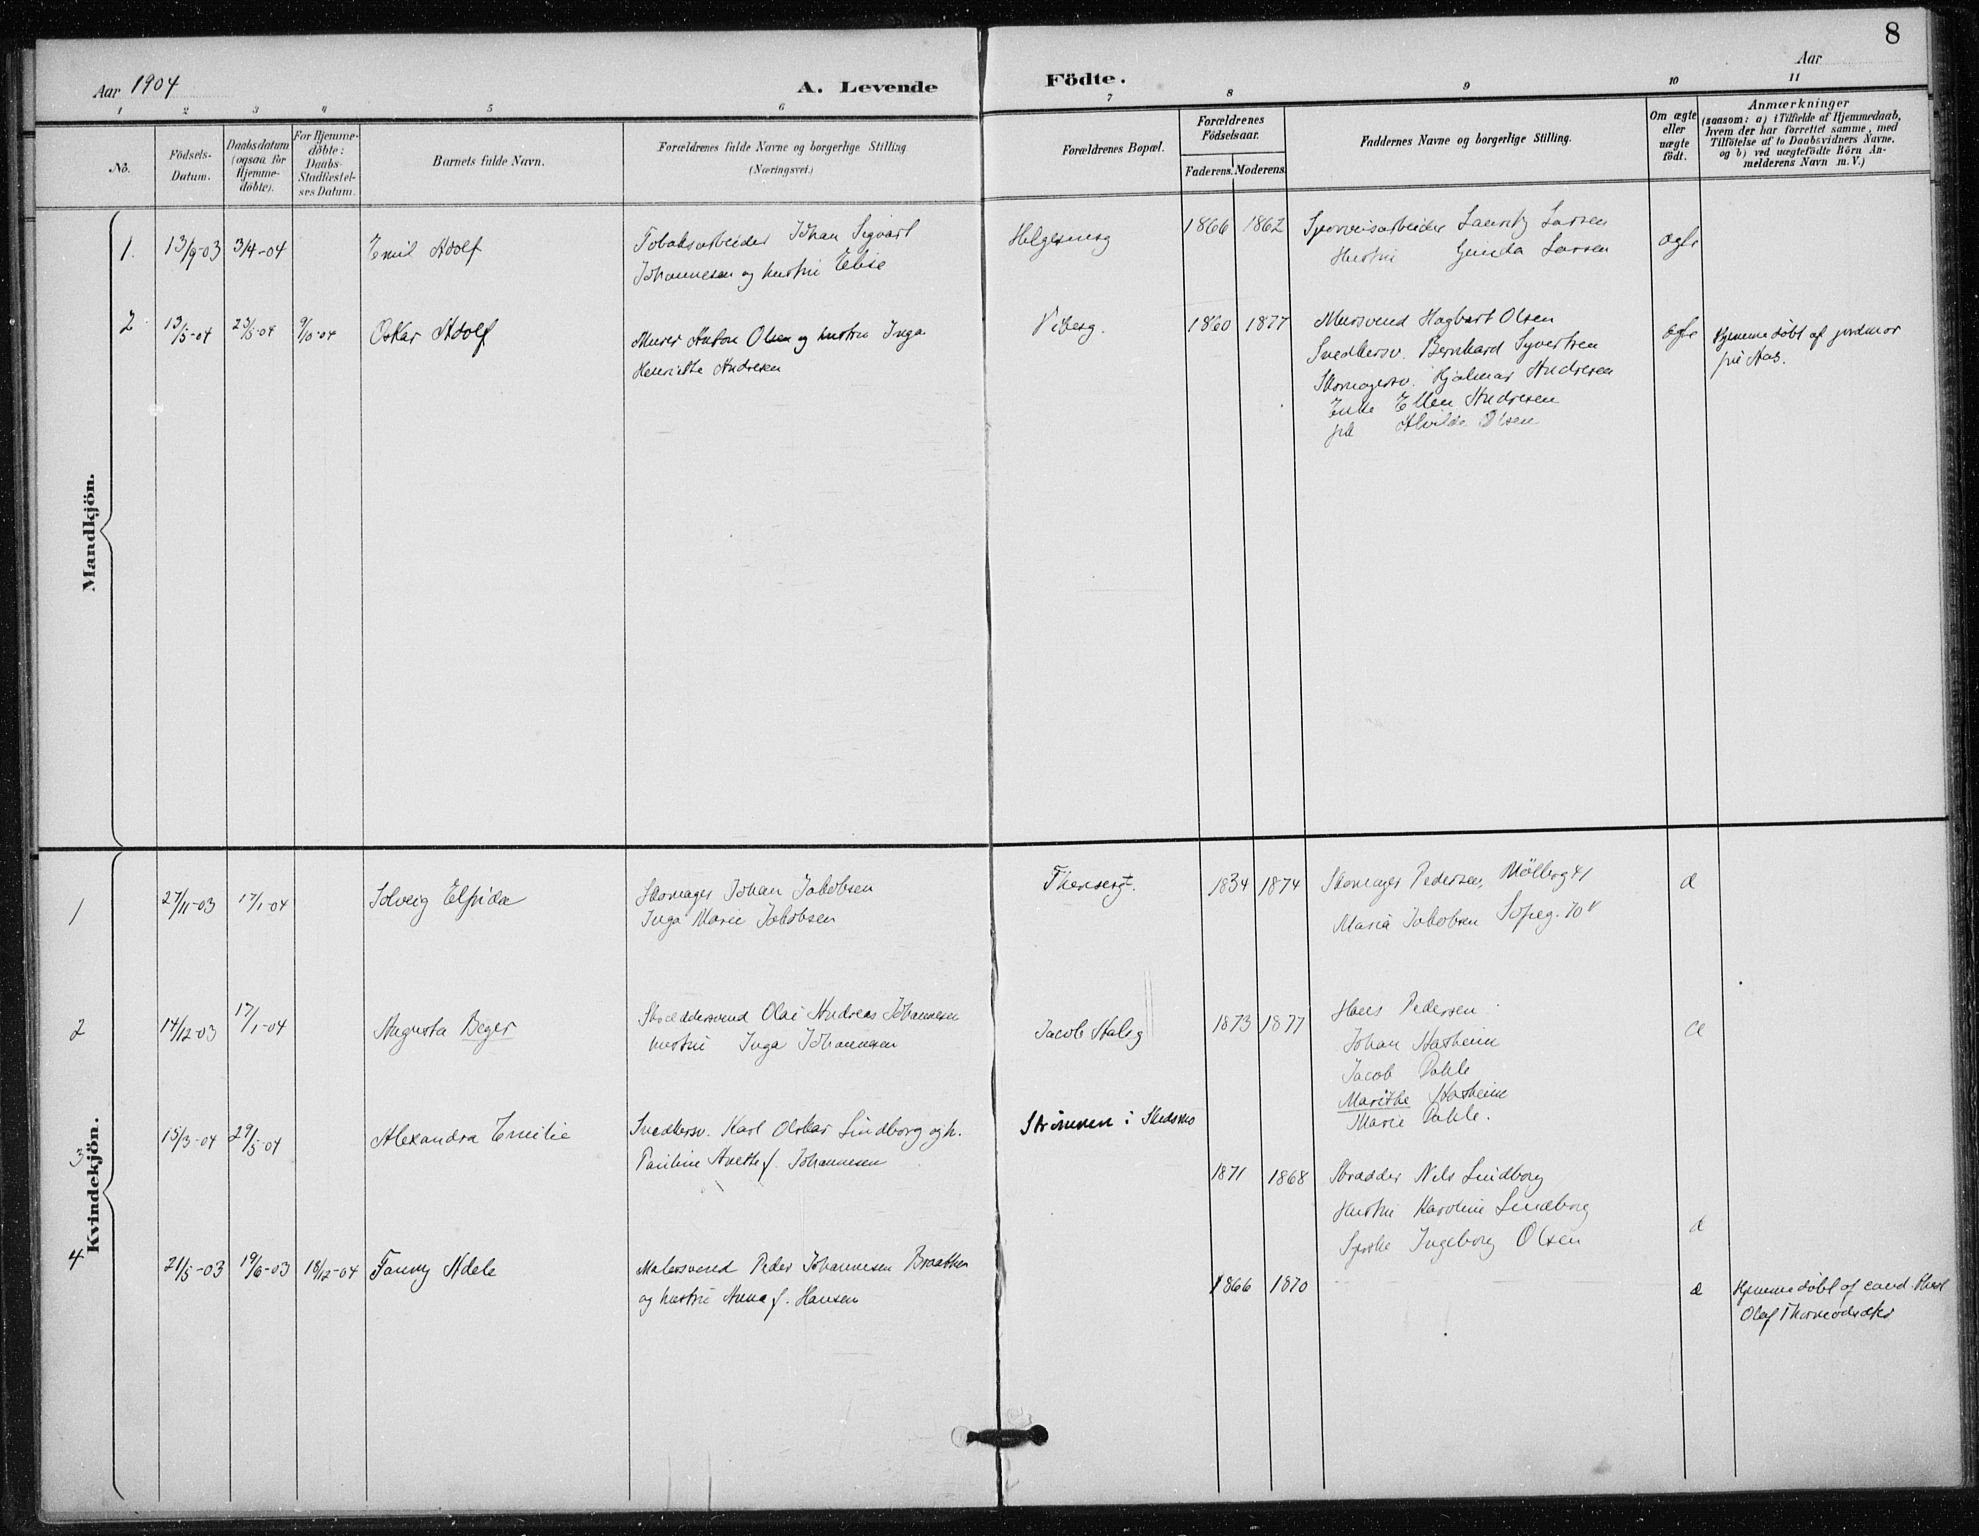 8
Aar 1904
A. Levende
Födte.
Aar
1 2 3 4 5 6 7 8 9 10 11
No.
Födsels-Datum.
Daabsdatum (ogsaa for Hjemme-döbte).
For Hjemme-döbte: Daabs-Stadfæstel-ses Datum.
Barnets fulde Navn.
Forældrenes fulde Navne og borgerlige Stilling
(Næringsvei.)
Forældrenes Bopæl.
Forældrenes Födselsaar.
Faderens. Moderens.
Faddernes Navne og borgerlige Stilling.
Om ægte eller uægte födt.
Anmærkninger
(saasom: a) i Tilfælde af Hjemmedaab,
hvem der har forrettet samme, med
Tilföielse af to Daabsvidners Navne,
og b) ved uægtefödte Börn An-
melderens Navn m. V.)
Mandkjön.
1. 13/9-03 3/4-04 Emil Adolf
Tobaksarbeider Johan Sigvart
Johannesen og hustru Elise
Helgesensg
1866 1862
Sporveisarbeider Lauritz Larsen
Hustru Gunda Larsen
ægte
2 13/5-04 23/5-04 Oskar Adolf
Murer Anton Olsen og hustru Inga
Henriette Andresen
Vibesg.
1860 1877
Mursvend Hagbart Olsen
Snedkersv. Bernhard Syvertsen
Skomagersv. Hjalmar Andresen
Enke Ellen Andresen
frk Alvilde Olsen
ægte
Hjemmedøbt af jordmor
frk Aas.
Kvindekjön.
1 27/11-03 17/1-04 Solveig Elfrida
Skomager Johan Jakobsen
Inga Marie Jakobsen
Theresesgt.
1834 1874
Skomager Pedersen, Møllerg 41
Maria Jakobsen Sofieg. 70 V
æ
2 14/12-03 17/1-04 Augusta Beger
Skræddersvend Olai Andreas Johannesen
hustru Inga Johannesen
Jacob Halsg
1873 1877
Hans Pedersen
Johan Aasheim
Jacob Dahle
Marithe Aasheim
Marie Dahle.
æ
3 15/3-04 29/5-04 Alexandra Emilie
Snedkersv. Karl Oskar Lindborg og h.
Pauline Anette f. Johannesen
Strømmen i Skedsmo
1871 1868
Skrædder Nils Lindborg
Hustru Karoline Lindborg
Frøken Ingeborg Olsen
æ
4 21/5-03 19/6-03 18/12-04 Fanny Adele
Malersvend Peder Johannesen Braathen
og hustru Anna f. Hansen
1866 1870
æ
Hjemmedøbt af cand. theol
Olaf Thormodsæter